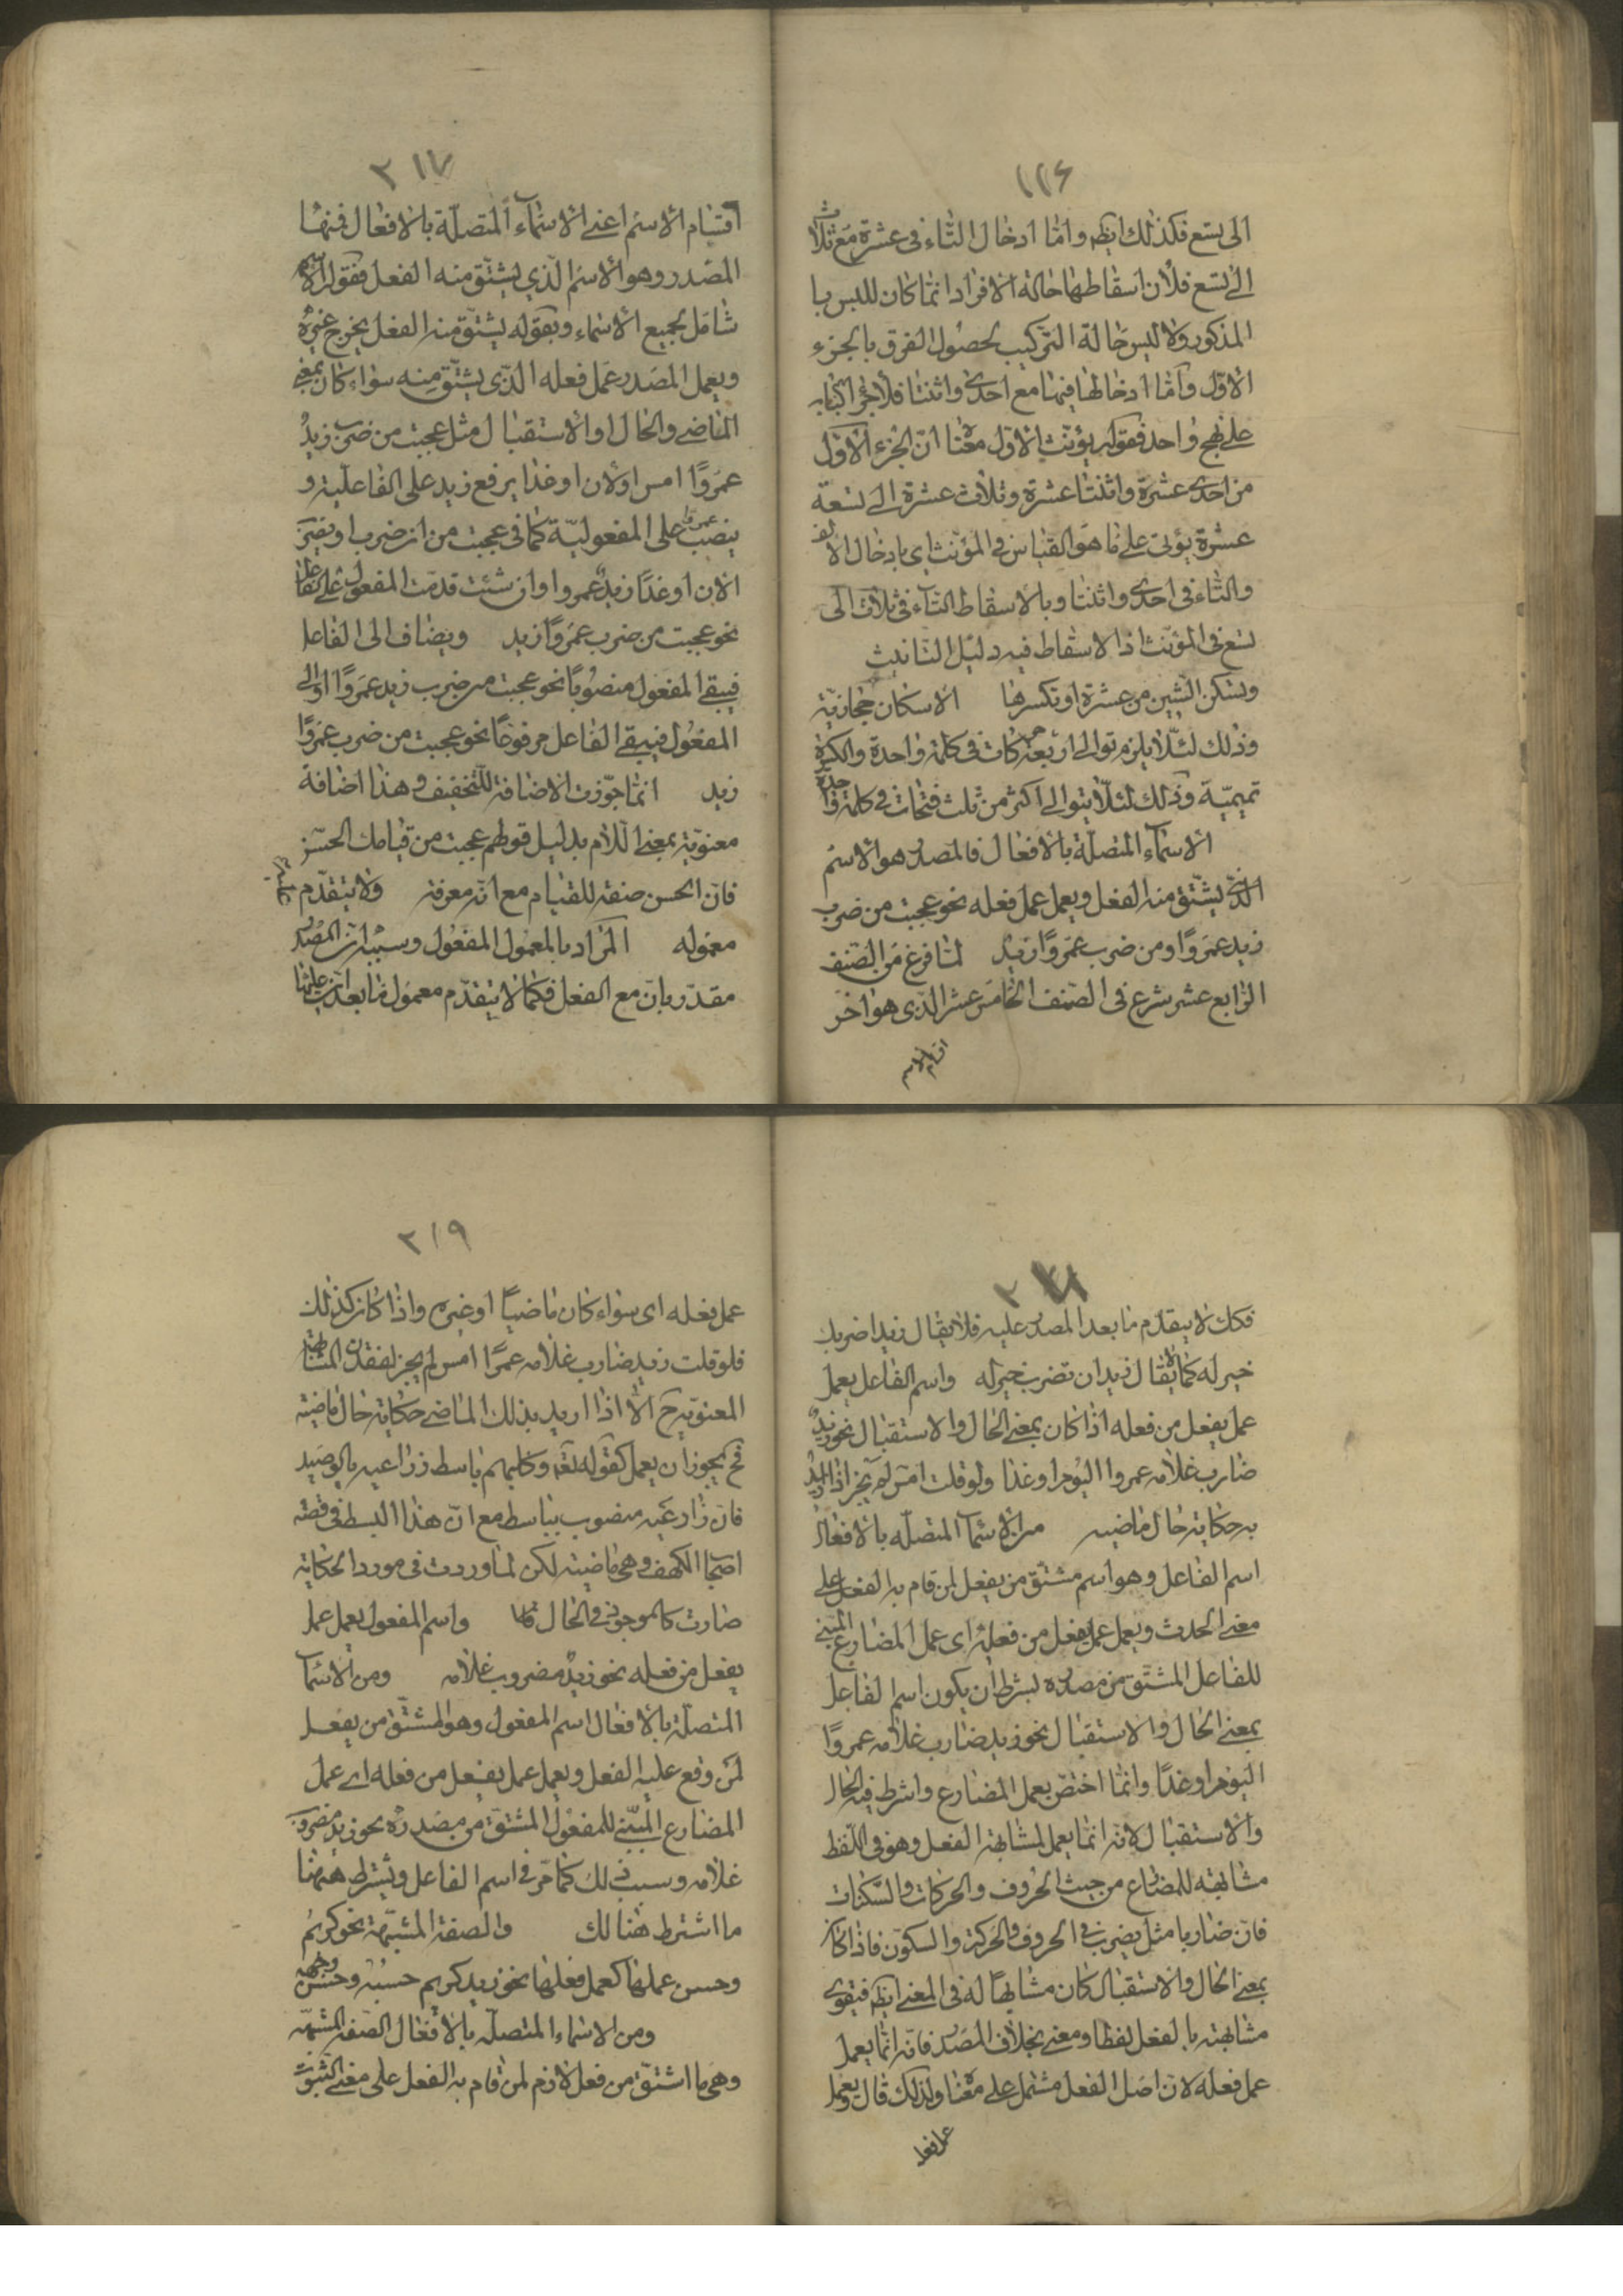 ١١٤
الى تسع فكذلك ايضا واما ادخال التاء فى عشرة مع ثلاث
الى تسع فلان اسقاطها حالة الافراد انما كان للبس با
المذكور ولا لبس حالة التركيب لحصول الفرق بالجزء
الاول واما ادخالها فيهما مع احدى واثنتا فلاجراء الباب
على نهج واحد فقوله يؤنث الاول معناه ان الجزء الاول
من احدى عشرة واثنتا عشرة وثلاث عشرة الى تسعة
عشرة يؤتى على ما هو القياس فى المؤنث اى بادخال الالف
والتاء فى احدى واثنتا وبالاسقاط التاء فى ثلاث الى
تسع فى المؤنث اذ الاسقاط فيه دليل التانيث
وتسكن الشين من عشرة او تكسرها الاسكان حجازية
وذلك لئلا يلزم توالى اربعة حركات فى كلمة واحدة والكسرة
تميمية وذلك لئلا يتوالى اكثر من ثلث فتحات فى كلمة واحدة
الاسماء المتصلة بالافعال فالمصدر هو الاسم
الذى يشتق منه الفعل ويعمل عمل فعله نحو عجبت من ضرب
زيد عمروًا ومن ضرب عمروًا زيد لما فرغ من الصنف
الرابع عشر شرع فى الصنف الخامس عشر الذى هو اخر
اقسام الاسم
٢١٧
اقسام الاسم اعنى الاسماء المتصلة بالافعال فمنها
المصدر وهو الاسم الذي يشتق منه الفعل فقوله الاسم
شامل لجميع الاسماء وبقوله يشتق منه الفعل يخرج غيره
ويعمل المصدر عمل فعله الذى يشتق منه سواء كان بمعنى
الماضى والحال او الاستقبال مثل عجبت من ضرب زيدٌ
عمروًا امس او الان او غدا برفع زيد على الفاعلية و
ينصب عمروا على المفعولية كما فى عجبت من ان ضرب او يضرب
الان او غدًا زيد عمروا وان شئت قدمت المفعول على الفاعل
نحو عجبت من ضرب عمروًا زيد ويضاف الى الفاعل
فيبقى المفعول منصوبًا نحو عجبت من ضرب زيد عمروًا او الى
المفعول فيبقى الفاعل مرفوعًا نحو عجبت من ضرب عمروًا
زيد انما جوزت الاضافة للتخفيف وهذا اضافة
معنوية بمعنى اللام بدليل قولهم عجبت من قيامك الحسن
فان الحسن صفة للقيام مع انه معرفة ولا يتقدم عليه
معموله المراد بالمعمول المفعول وسببه ان المصدر
مقدر بان مع الفعل فكما لا يتقدم معمول ما بعد ان عليها
٢١٨
فكك لا يتقدم ما بعد المصدر عليه فلا يقال زيدا ضربك
خير له كما لا يقال زيدا ان تضرب خير له واسم الفاعل يعمل
عمل يفعل من فعله اذا كان بمعنى الحال والاستقبال نحو زيدٌ
ضارب غلامه عمروا اليوم او غدا ولو قلت امس لم يجز الا اذا اريد
به حكاية حال ماضيه من الاسما المتصله بالافعال
اسم الفاعل وهو اسم مشتق من يفعل لمن قام به الفعل على
معنى الحدث ويعمل عمل يفعل من فعله اى عمل المضارع المبنى
للفاعل المشتق من مصدره بشرط ان يكون اسم الفاعل
بمعنى الحال والاستقبال نحو زيد ضارب غلامه عمروًا
اليوم او غدًا وانما اختص بعمل المضارع واشرط فيه الحال
والاستقبال لانه انما يعمل لمشابهة الفعل وهو فى اللفظ
مشابهة للمضارع من حيث الحروف والحركات والسكنات
فان ضاربا مثل يضرب فى الحروف والحركة والسكون فاذا كان
بمعنى الحال والاستقبال كان مشابهًا له فى المعنى ايضا فتقوى
مشابهته بالفعل لفظا ومعنى بخلاف المصدر فانه انما يعمل
عمل فعله لان اصل الفعل مشتمل على معناه ولذلك قال ويعمل
عمل فعله
٢١٩
عمل فعله اى سواء كان ماضيًا او غيره واذا كان كذلك
فلو قلت زيد ضارب غلامه عمرًا امس لم يجز لفقدان المشابهة
المعنوية ح الا اذا اريد بذلك الماضى حكاية حال ماضية
فح يجوز ان يعمل كقوله تعه وكلبهم باسط ذراعيه بالوصيد
فان ذراعيه منصوب بباسط مع ان هذا البسط فى قصة
اصحاب الكهف وهى ماضية لكن لما وردت فى مورد الحكاية
صارت كالموجود فى الحال واسم المفعول يعمل عمل
يفعل من فعله نحو زيدٌ مضروب غلامه ومن الاسما
المتصلة بالافعال اسم المفعول وهو المشتق من يفعل
لمن وقع عليه الفعل ويعمل عمل يفعل من فعله اى عمل
المضارع المبنى للمفعول المشتق من مصدره نحو زيد مضروب
غلامه وسبب ذلك كما مر فى اسم الفاعل ويشترط ههنا
ما اشترط هنالك والصفة المشبهة نحو كريمٌ
وحسن عملها كعمل فعلها نحو زيد كريم حسبه وحسن وجهه
ومن الاسماء المتصلة بالافعال الصفة المشبهة
وهى ما اشتق من فعل لازم لمن قام به الفعل على معنى الثبوت